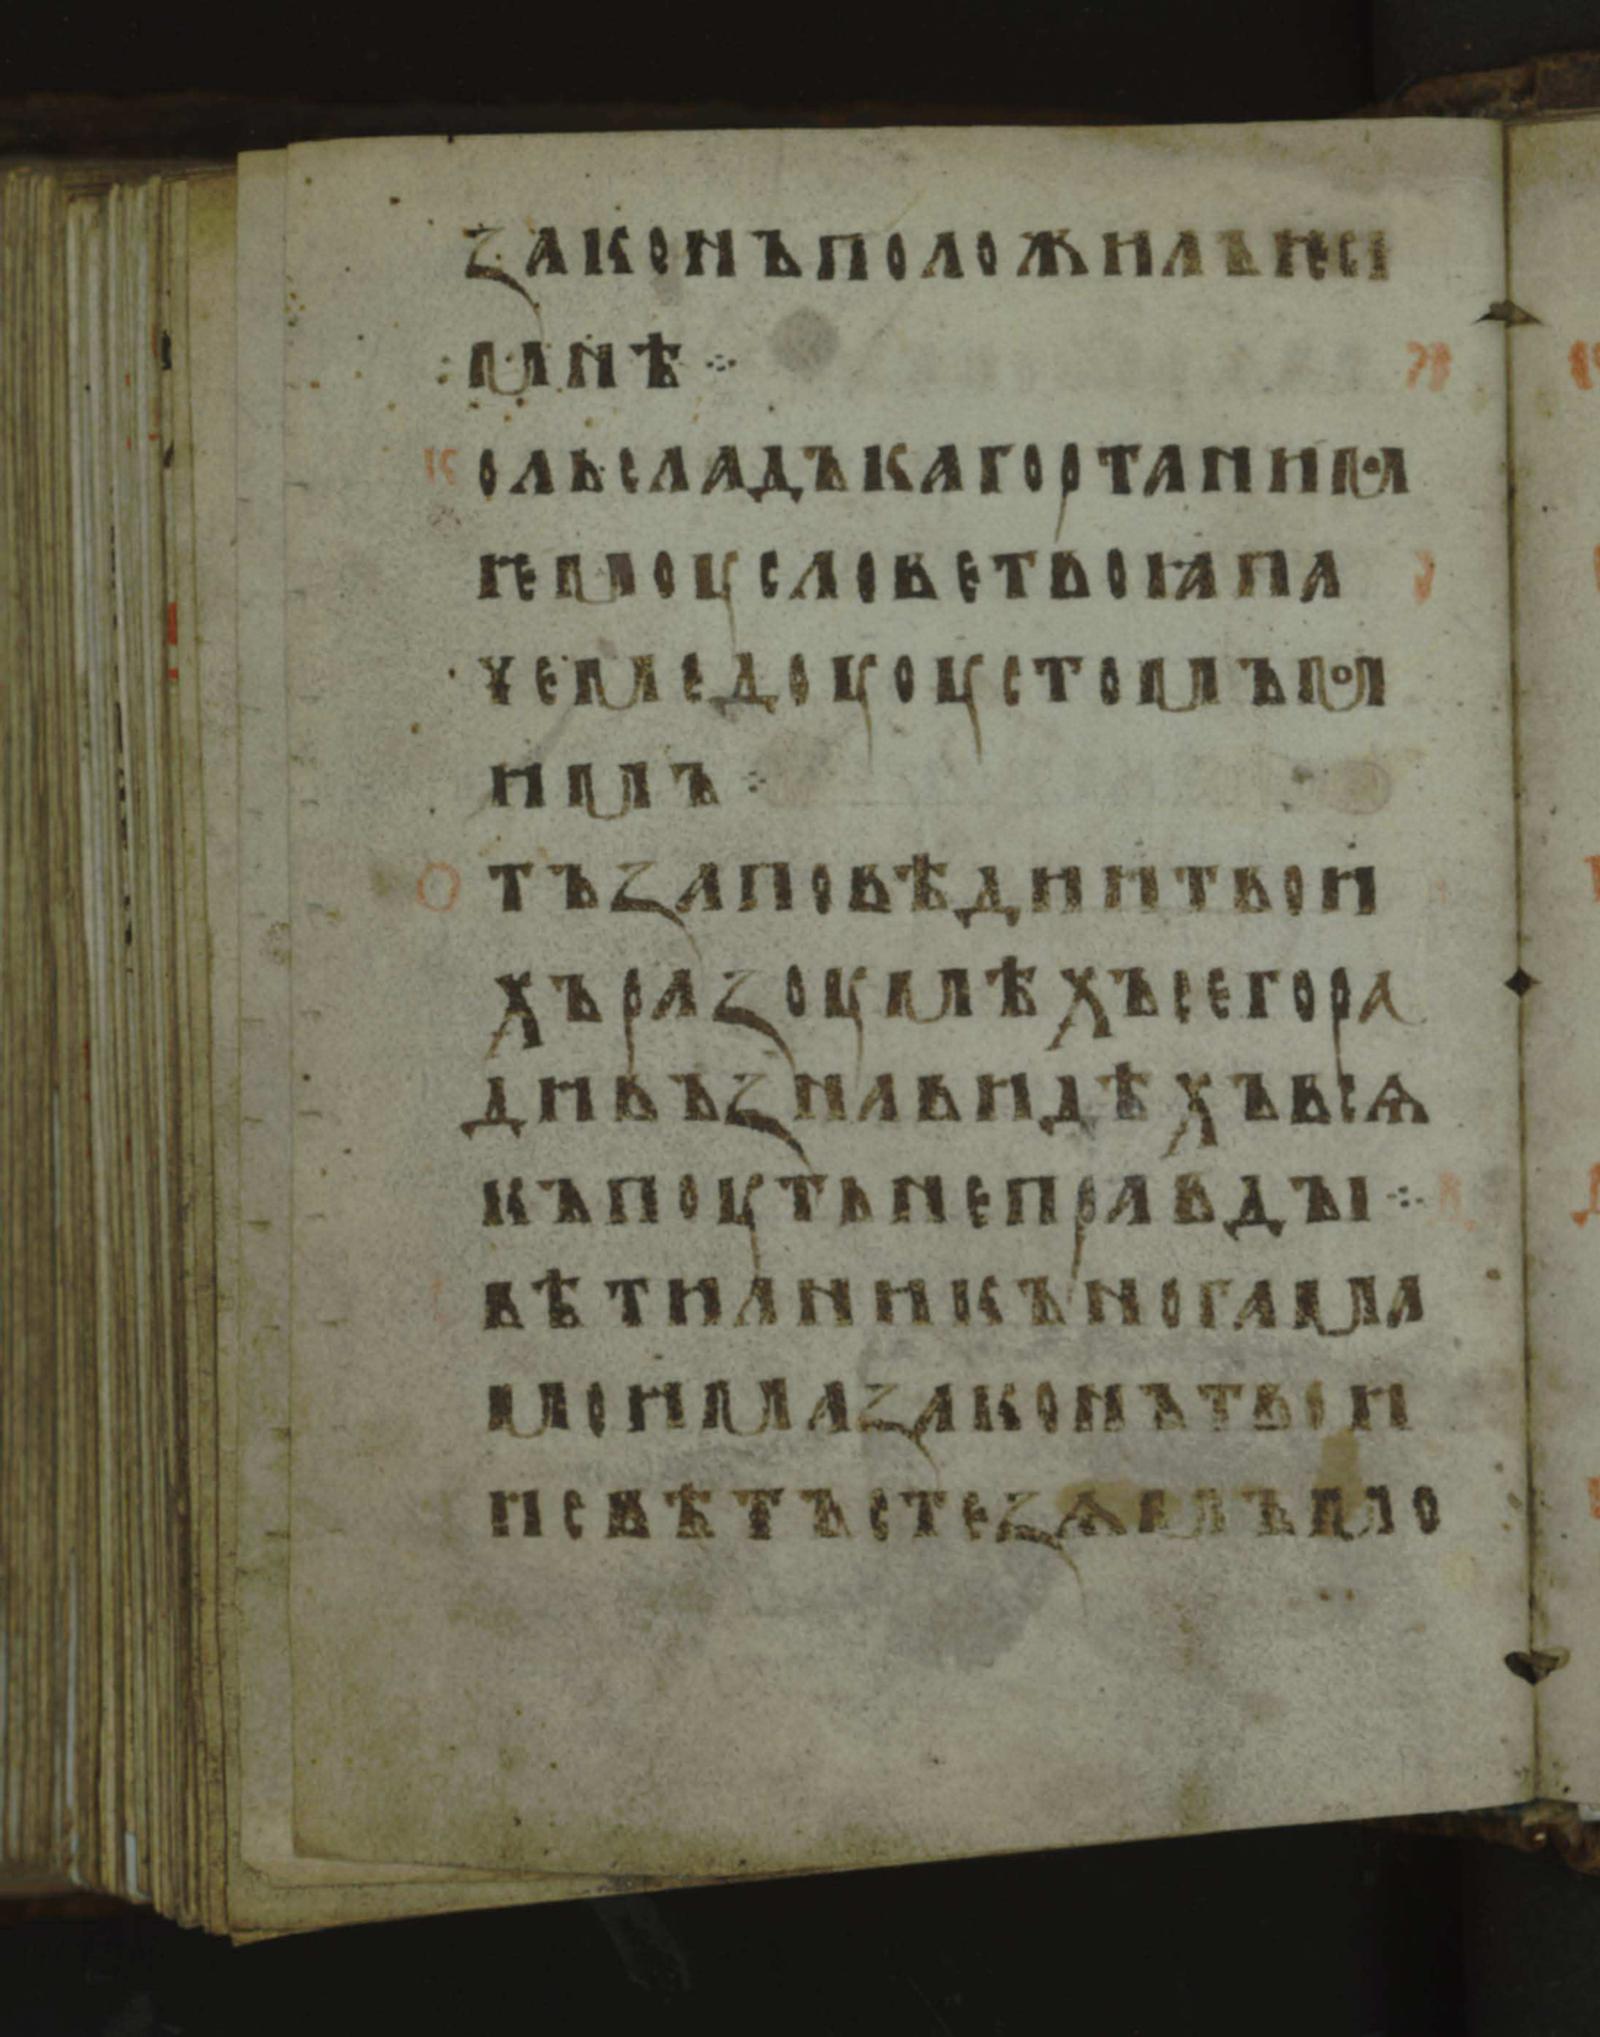 ꙁаконъположилъѥсі
мнѣ ⁘
Кольсладъкагортанимо
ѥмоусловетвоꙗпа
чемедоуоустомъмо
имъ ⁘
Отъꙁаповѣдниитвои
хъраꙁоумѣхъсегора
дивъꙁнавидѣхъвьсѧ
къпоутьнеправды ⁘
вѣтилникъногама
моимаꙁаконътвои
исвѣтъстеꙁѧмъмо